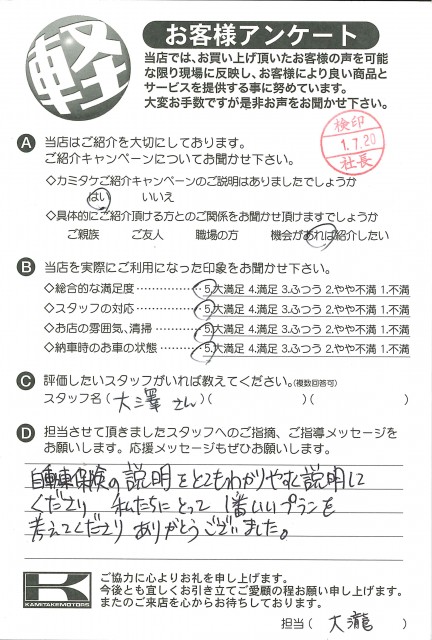 軽
お客様アンケート
当店では、お買い上げ頂いたお客様の声を可能
な限り現場に反映し、お客様により良い商品と
サービスを提供する事に努めています。
大変お手数ですが是非お声をお聞かせ下さい。
検印
1.7.20
社長
A 当店はご紹介を大切にしております。
ご紹介キャンペーンについてお聞かせ下さい。
◇カミタケご紹介キャンペーンのご説明はありましたでしょうか
はい いいえ
◇具体的にご紹介頂ける方とのご関係をお聞かせ頂けますでしょうか
ご親族 ご友人 職場の方 機会があれば紹介したい
B 当店を実際にご利用になった印象をお聞かせ下さい。
◇総合的な満足度……………5.大満足 4.満足 3.ふつう 2.やや不満 1.不満
◇スタッフの対応……………5.大満足 4.満足 3.ふつう 2.やや不満 1.不満
◇お店の雰囲気、清掃………5.大満足 4.満足 3.ふつう 2.やや不満 1.不満
◇納車時のお車の状態………5.大満足 4.満足 3.ふつう 2.やや不満 1.不満
C 評価したいスタッフがいれば教えてください。(複数回答可)
スタッフ名(大澤さん)( )( )
D 担当させて頂きましたスタッフへのご指摘、ご指導メッセージを
お願いします。応援メッセージもぜひお願いします。
自動車保険の説明をとてもわかりやすく説明して
くださり 私たちにとって 1番いいプランを
考えてくださり ありがとうございました。
K
KAMITAKE MOTORS
ご協力に心よりお礼を申し上げます。
今後とも宜しくお引き立てご愛顧の程お願い申し上げます。
またのご来店を心からお待ちしております。
担当( 大瀧 )